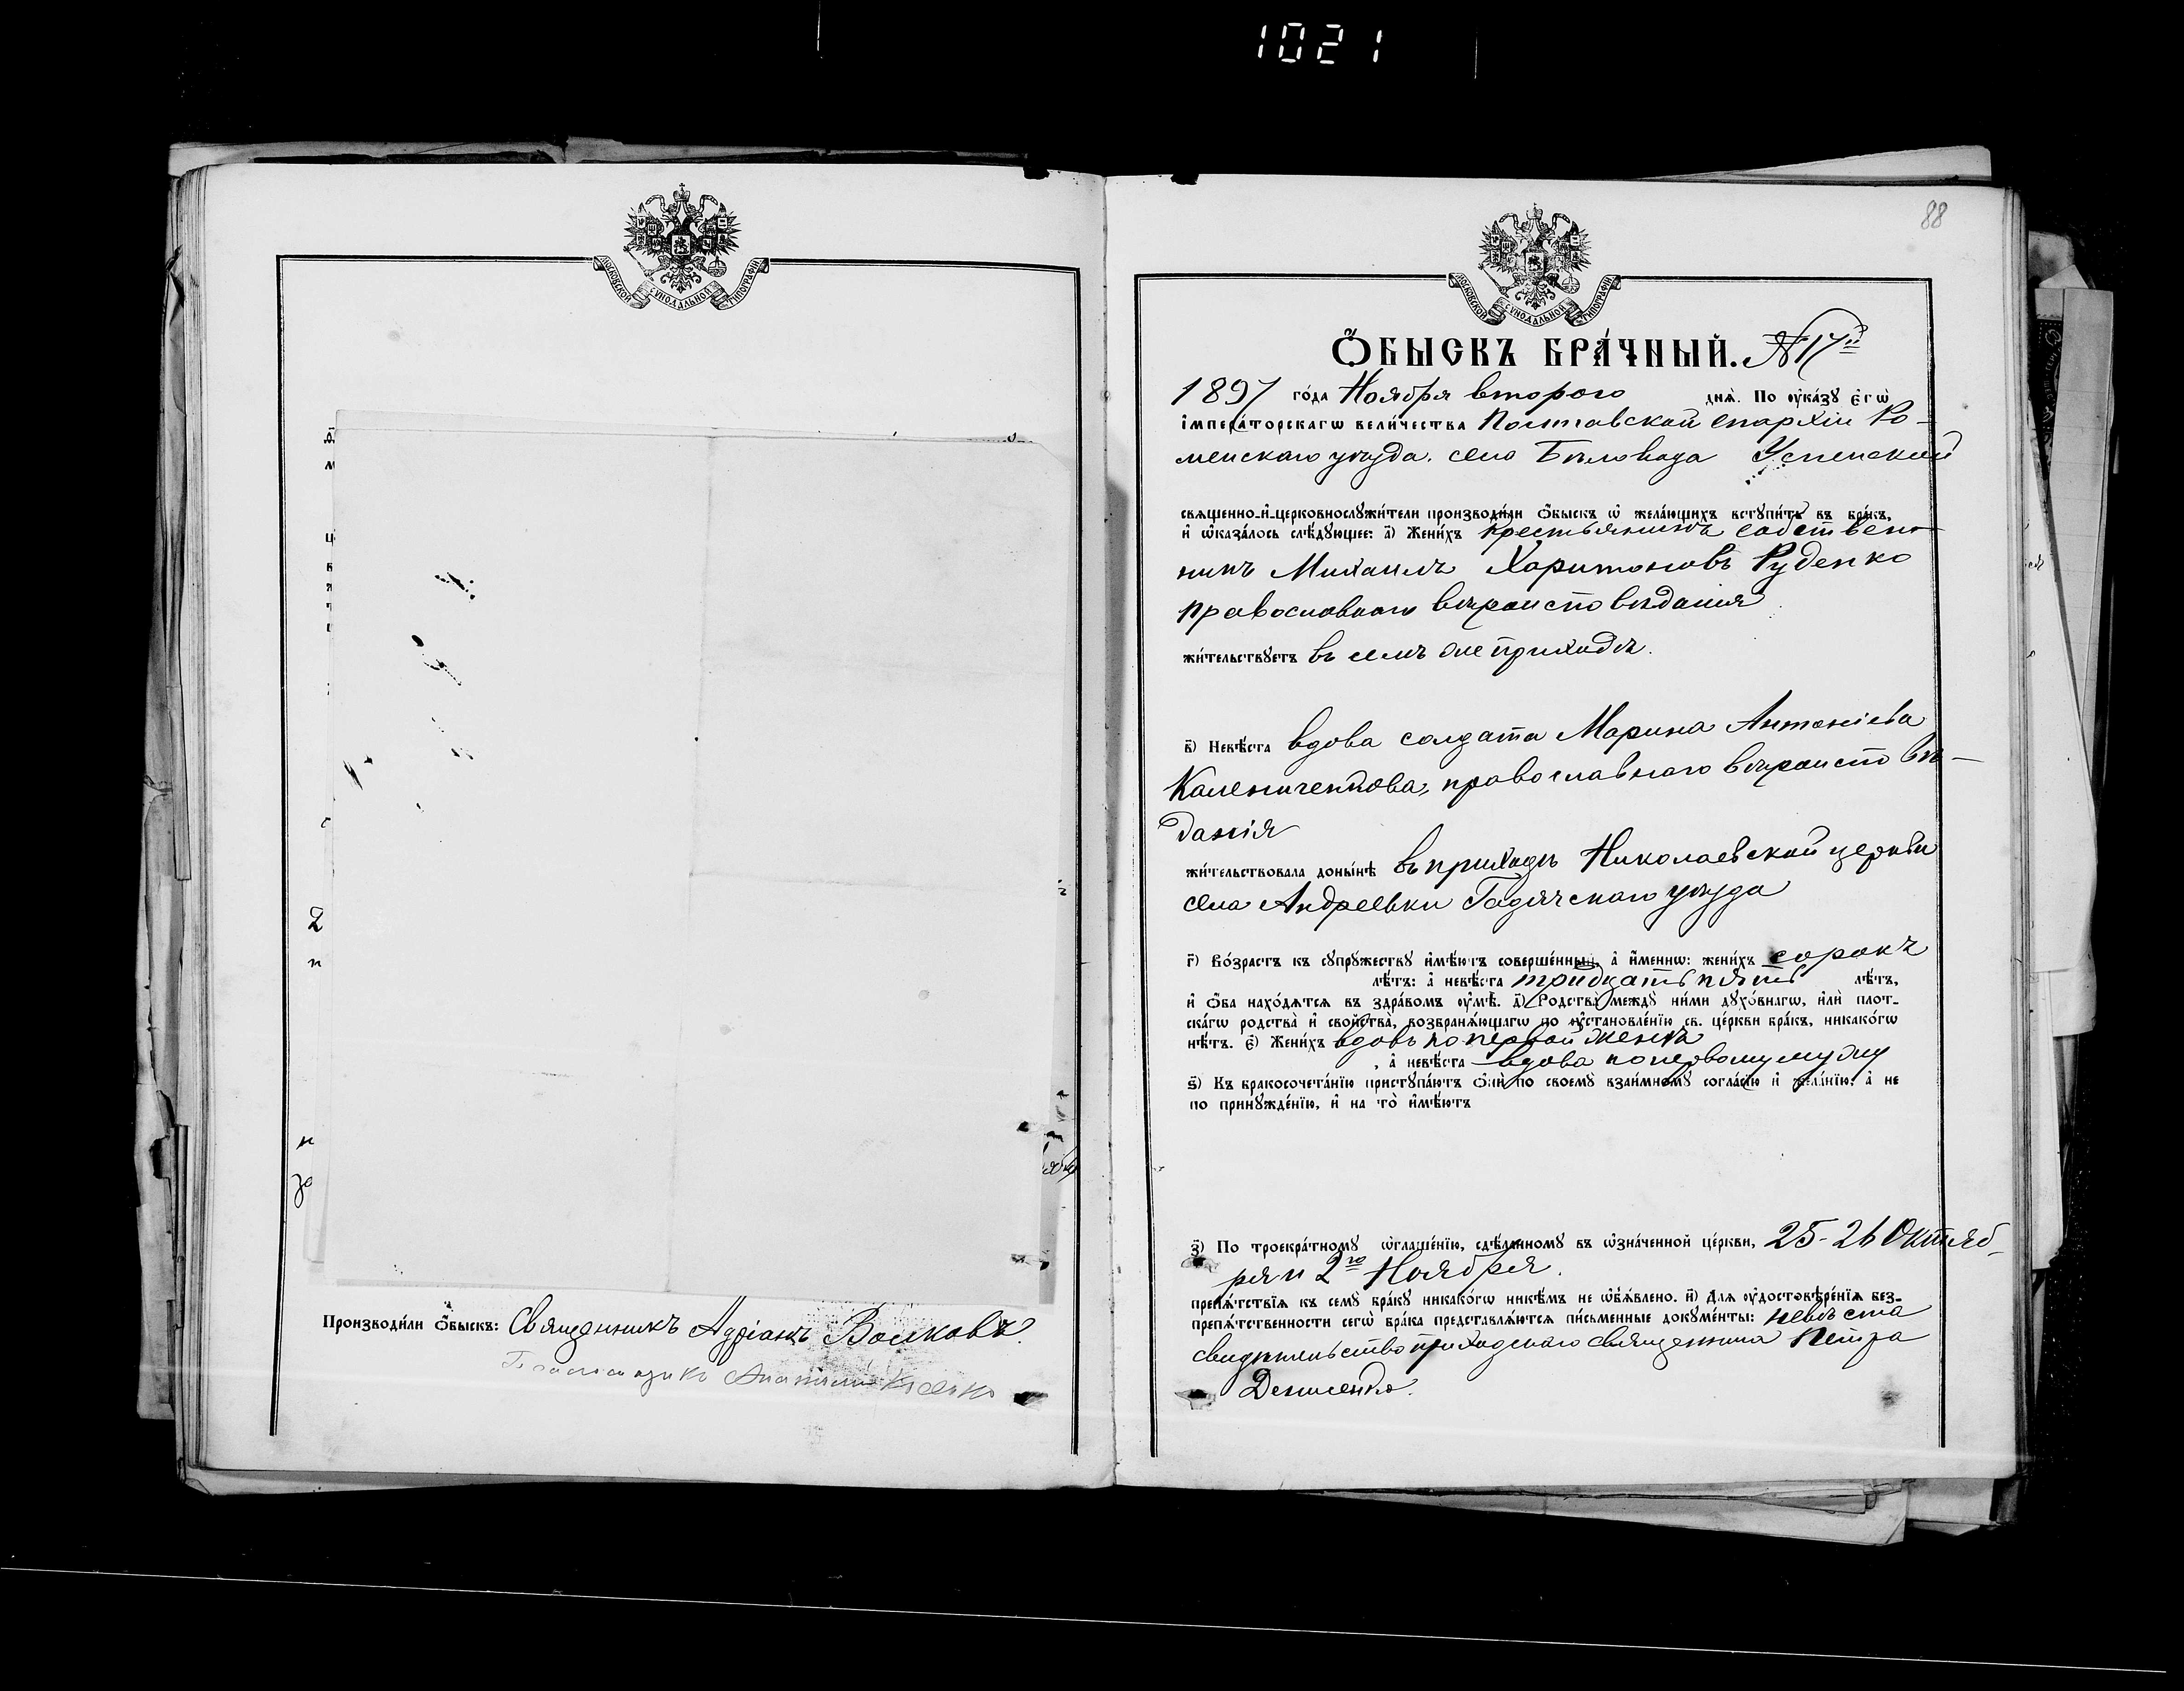 1021
МОСКОВСКОЙ СѴНОДАЛЬНОЙ ТИПОГРАФІИ
Производи́ли Ѻ҆́быскъ: Священникъ Адріанъ Волковъ.
88
МОСКОВСКОЙ СѴНОДАЛЬНОЙ ТИПОГРАФІИ
Ѻ҆́БЫСКЪ БРА́ЧНЫЙ. N 17й
1897 го́да Ноября второго днѧ̀. По ᲂу҆ка́зꙋ є҆гѡ̀
і҆мпера́торскагѡ вели́чества Полтавской епархіи Ро-
менскаго уѣзда. село Бѣловода Успенской
свѧщенно-и҆-церковнослꙋжи́тели производи́ли ѻ҆́быскъ ѡ҆ жела́ющихъ встꙋпи́ть въ бра́къ,
и҆ ѡ҆каза́лось слѣ́дꙋющее: а҃) Жени́хъ крестьянинъ собствен-
никъ Михаилъ Харитоновъ Руденко
православнаго вѣроисповѣданія
жи́тельствꙋетъ въ семъ же приходѣ.
в҃) Невѣ́ста вдова солдата Марина Антоніева
Калениченкова, православнаго вѣроисповѣ-
данія
жи́тельствовала доны́нѣ въ приходѣ Николаевской церкви
села Андреевки Гадячскаго уѣзда
г҃) Во́зрастъ къ сꙋпрꙋ́жествꙋ и҆мѣ́ютъ соверше́нный, а҆ и҆́меннѡ: жени́хъ сорокъ
лѣ́тъ: а҆ невѣ́ста тридцать пять лѣ́тъ,
и҆ ѻ҆́ба нахо́дѧтсѧ въ здра́вомъ ᲂу҆мѣ̀. д҃) Родства̀ междꙋ̀ ни́ми дꙋхо́внагѡ, и҆лѝ плот-
ска́гѡ родства̀ и҆ свойства̀, возбранѧ́ющагѡ по ᲂу҆становле́нїю св. це́ркви бра́къ, никако́гѡ
нѣ́тъ. є҃) Жени́хъ вдовъ по первой женѣ
, а҆ невѣ́ста вдова по первому мужу
ѕ҃) Къ бракосочета́нїю пристꙋпа́ютъ ѻ҆нѝ по своемꙋ̀ взаи́мномꙋ согла́сїю и҆ жела́нїю, а҆ не
по принꙋжде́нїю, и҆ на то̀ и҆мѣ́ютъ
з҃) По троекра́тномꙋ ѡ҆глаше́нїю, сдѣ́ланномꙋ въ ѡ҆зна́ченной це́ркви, 25-26 Октяб-
ря и 2го Ноября.
препѧ́тствїѧ къ семꙋ̀ бра́кꙋ никако́гѡ никѣ́мъ не ѡ҆б̾ѧ́влено. и҃) Длѧ ᲂу҆достовѣре́нїѧ без-
препѧ́тственности сегѡ̀ бра́ка представлѧ́ютсѧ пи́сьменные докꙋме́нты: невѣста
свидѣтельство приходскаго священника Петра